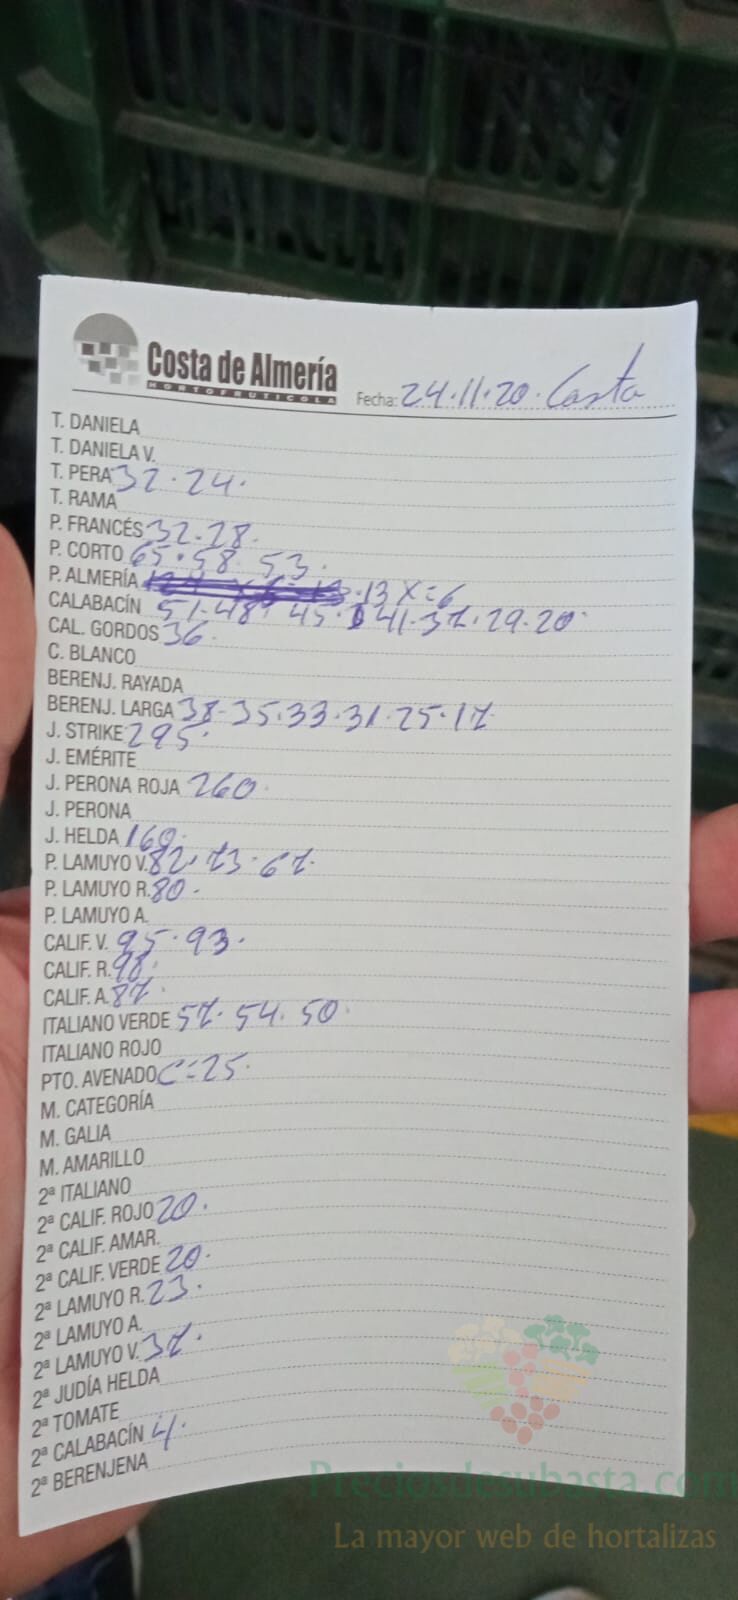 Costa de Almería
HORTOFRUTICOLA
Fecha: 24.11.20. Costa
T. DANIELA
T. DANIELA V.
T. PERA 32.24.
T. RAMA
P. FRANCÉS 32.28.
P. CORTO 65.58.53.
P. ALMERÍA .13 X=6
CALABACÍN 51.48. 45. 41.37.29.20.
CAL. GORDOS 36.
C. BLANCO
BERENJ. RAYADA
BERENJ. LARGA 38-35.33.31.25.17
J. STRIKE 295.
J. EMÉRITE
J. PERONA ROJA 260.
J. PERONA
J. HELDA 160.
P. LAMUYO V. 82.73.67.
P. LAMUYO R. 80.
P. LAMUYO A.
CALIF. V. 95.93.
CALIF. R. 98.
CALIF. A. 87.
ITALIANO VERDE 57.54.50.
ITALIANO ROJO
PTO. AVENADO C=25.
M. CATEGORÍA
M. GALIA
M. AMARILLO
2ª ITALIANO
2ª CALIF. ROJO 20.
2ª CALIF. AMAR.
2ª CALIF. VERDE 20.
2ª LAMUYO R. 23.
2ª LAMUYO A.
2ª LAMUYO V. 37.
2ª JUDÍA HELDA
2ª TOMATE
2ª CALABACÍN 4.
2ª BERENJENA
Preciosdesubasta.com
La mayor web de hortalizas